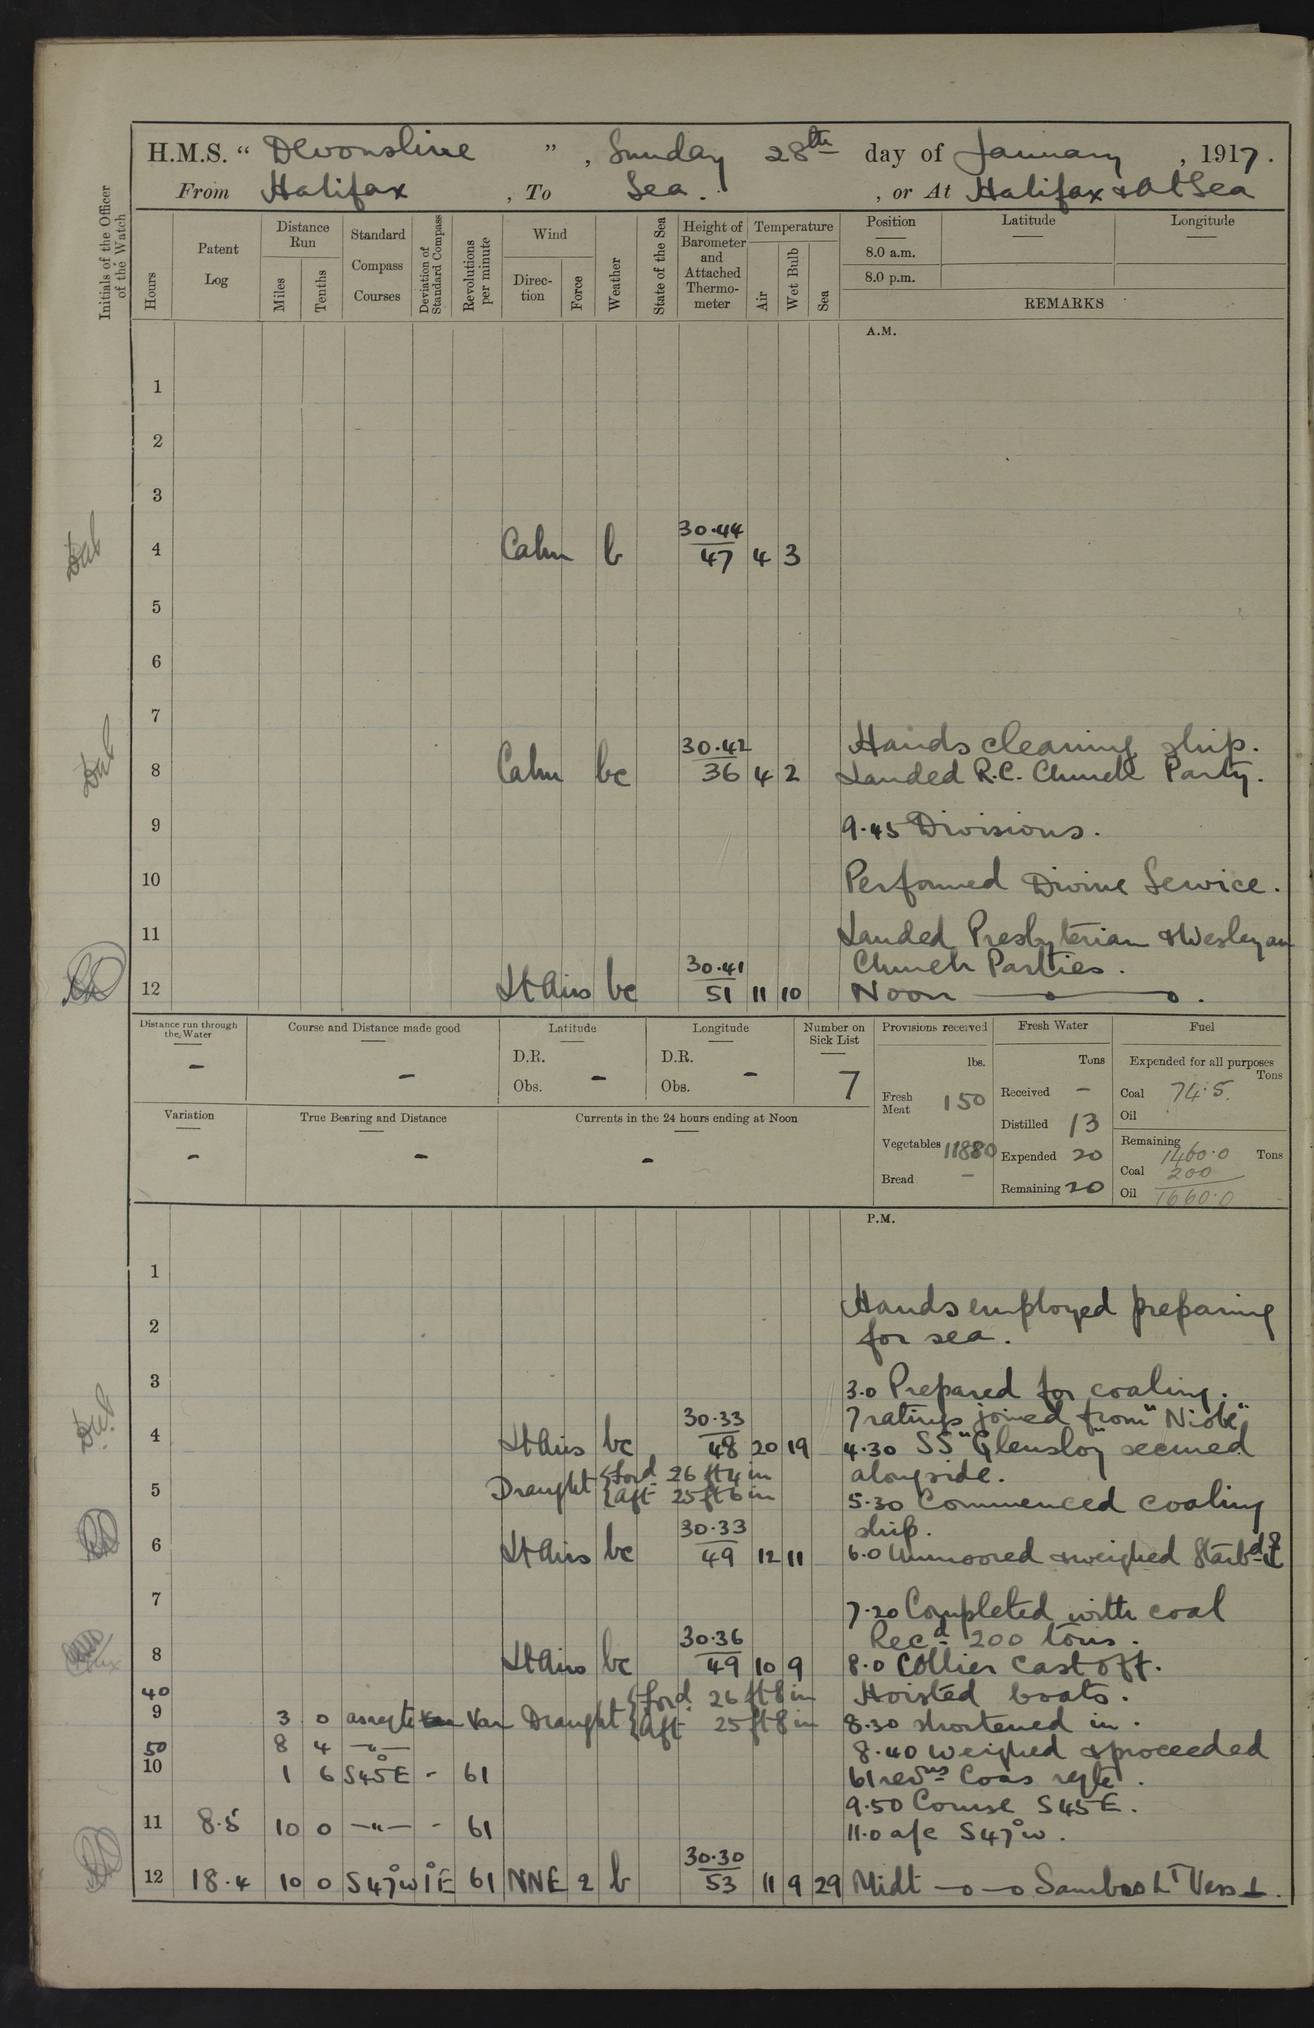 H.M.S. “ Devonshire ” , Sunday 28th day of January , 1917.
From Halifax , To Sea. , or At Halifax & At Sea
Initials of the Officer of the Watch
Hours
Patent Log
Distance Run
Miles
Tenths
Standard Compass Courses
Deviation of Standard Compass
Revolutions per minute
Wind
Direction
Force
Weather
State of the Sea
Height of Barometer and Attached Thermometer
Temperature
Air
Wet Bulb
Sea
Position
Latitude
Longitude
8.0 a.m.
8.0 p.m.
REMARKS
A.M.
1
2
3
4 Calm b 30.44 47 4 3
5
6
7
Hands cleaning ship.
8 Calm bc 30.42 36 4 2 Landed R.C. Church Party.
9 9.45 Divisions.
10 Performed Divine Service.
11 Landed Presbyterian & Wesleyan
Church Parties.
12 Lt Airs bc 30.41 51 11 10 Noon
Distance run through the Water
-
Course and Distance made good
-
Latitude
D.R.
Obs. -
Longitude
D.R.
Obs. -
Number on Sick List
7
Provisions received
lbs.
Fresh Meat 150
Vegetables 11880
Bread -
Fresh Water
Tons
Received -
Distilled 13
Expended 20
Remaining 20
Fuel
Expended for all purposes
Tons
Coal 74.5
Oil
Remaining
1460.0 Tons
Coal 200
Oil 1660.0
Variation
-
True Bearing and Distance
-
Currents in the 24 hours ending at Noon
-
P.M.
1
Hands employed preparing
2 for sea.
3 3.0 Prepared for coaling.
7 ratings joined from "Niobe"
4 Lt Airs bc 30.33 48 20 19 4.30 SS "Glensloy" secured
Draught {ford 26 ft 4 in alongside.
5 {aft 25 ft 6 in 5.30 Commenced coaling
ship.
6 Lt Airs bc 30.33 49 12 11 6.0 Unmoored & weighed Starbd
7 7.20 Completed with coal
Recd 200 tons.
8 Lt Airs bc 30.36 49 10 9 8.0 Collier cast off.
40 Draught {ford 26 ft 8 in Hoisted boats.
9 3 0 as reqte Var {Aft 25 ft 8 in 8.30 shortened in.
50 8 4 —"— 8.40 weighed & proceeded
10 1 6 S45°E - 61 61 revns Cos reqte.
9.50 Course S45E.
11 8.5 10 0 —"— - 61 11.0 a/c S47°W.
12 18.4 10 0 S47°W 1°E 61 NNE 2 b 30.30 53 11 9 29 Midt Sambro Lt Vess